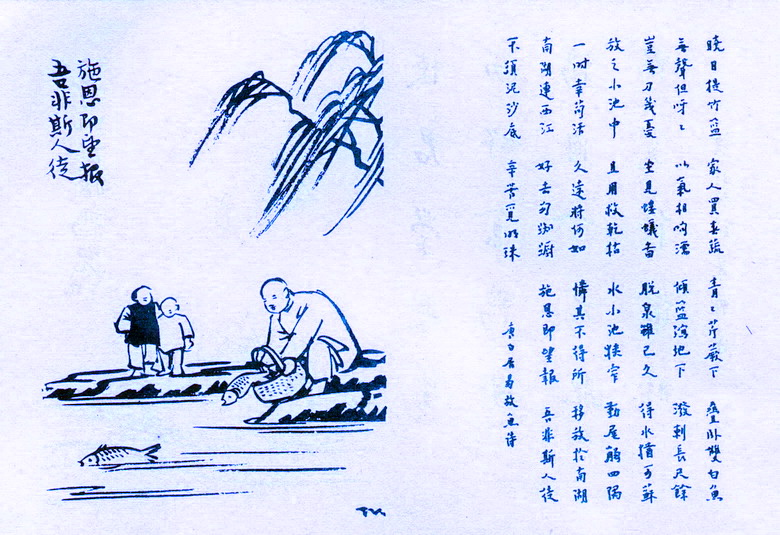 曉日提竹籃 家人買春蔬 青々芹蕨下 疊臥雙白魚
無聲但呀々 以氣相喣濡 傾籃瀉地下 潑剌長尺餘
豈無刀幾憂 坐見螻蟻啚 脫泉雖已久 得水猶可蘇
放之小池中 且用救乾枯 水小池狹窄 動尾觸四隅
一時幸苟活 久遠將何如 憐其不得所 移放於南湖
南湖連西江 好去勿踟躕 施恩即望報 吾非斯人徒
不須泥沙底 辛苦覓明珠 唐白居易放魚詩
施恩即望報
吾非斯人徒
TK